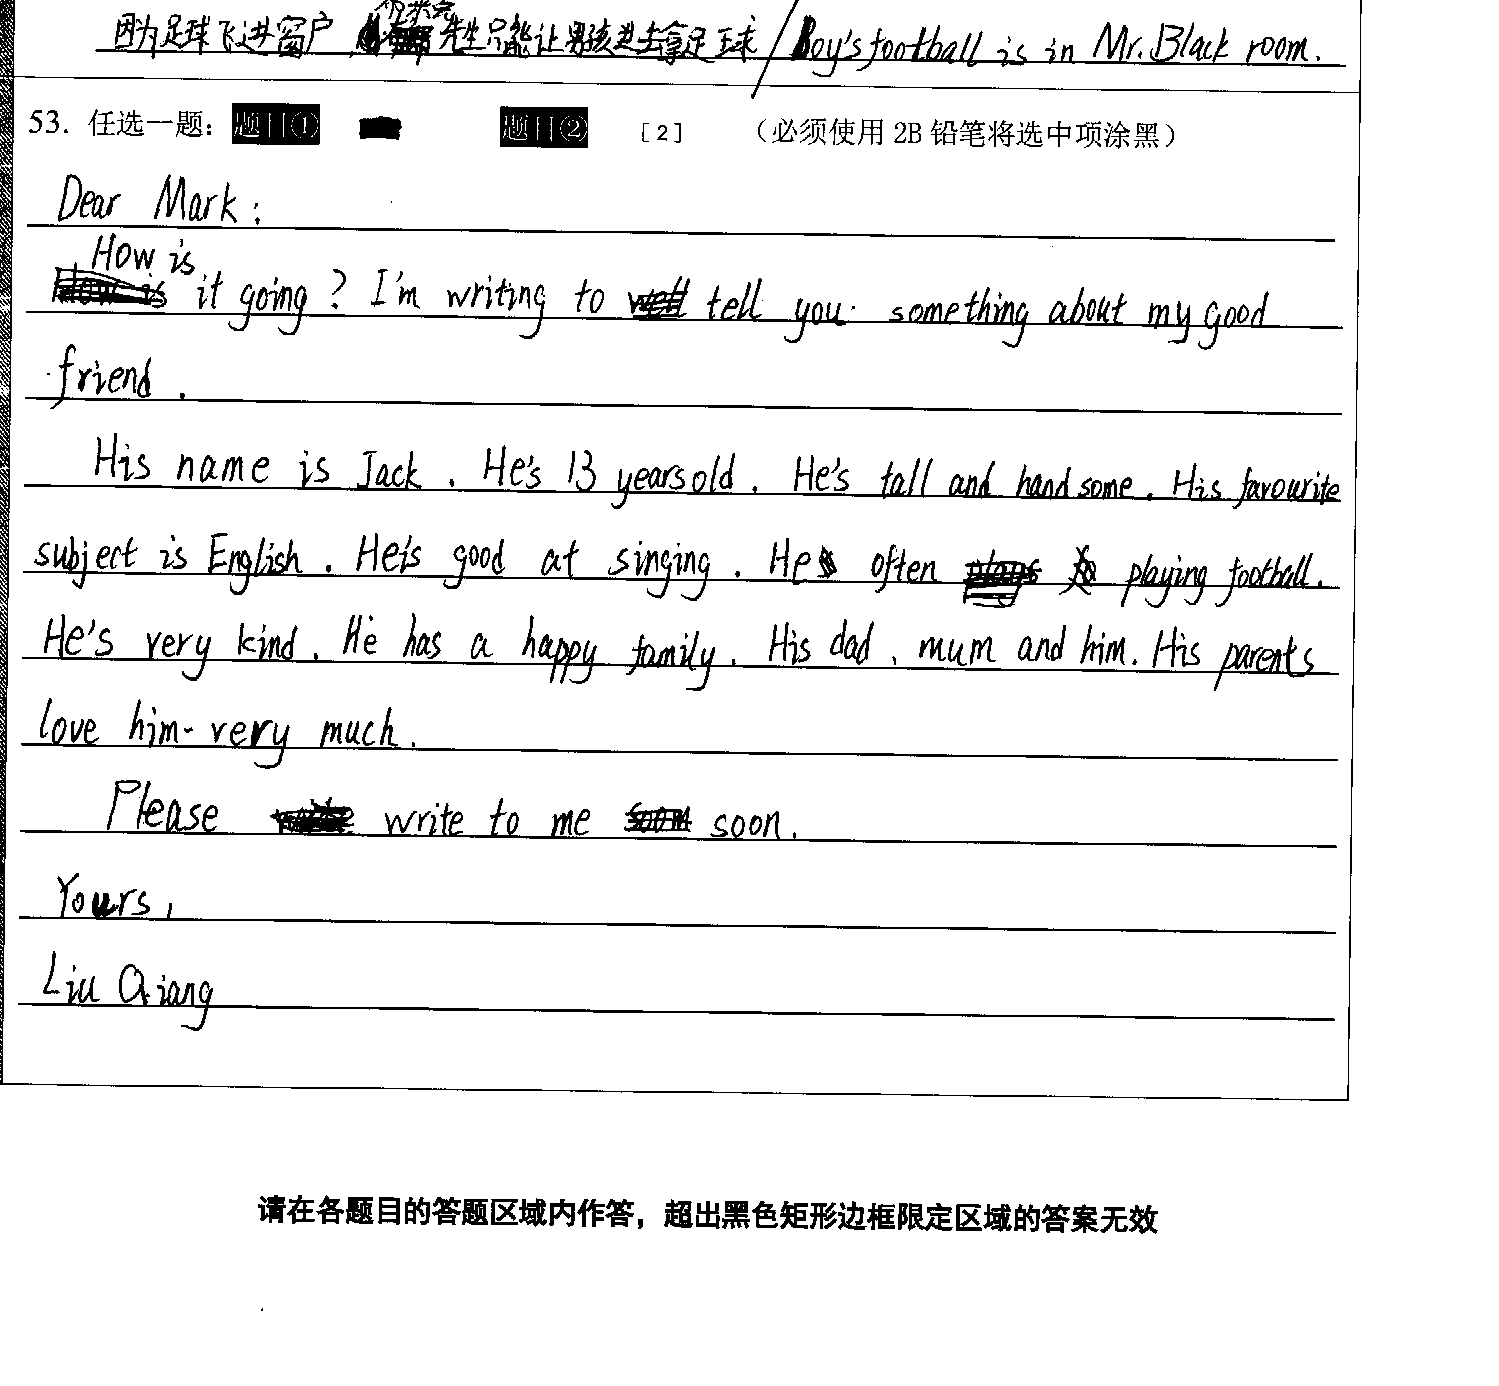 因为足球飞进窗户,布莱克先生只能让男孩进去拿足球/Boy's football is in Mr. Black room.
53. 任选一题: 题目① 题目② [2] (必须使用 2B 铅笔将选中项涂黑)
Dear Mark:
How is it going? I'm writing to tell you something about my good
friend.
His name is Jack. He's 13 years old. He's tall and handsome. His favourite
subject is English. He's good at singing. He often playing football.
He's very kind. He has a happy family. His dad, mum and him. His parents
love him very much.
Please write to me soon.
Yours,
Liu Qiang
请在各题目的答题区域内作答，超出黑色矩形边框限定区域的答案无效